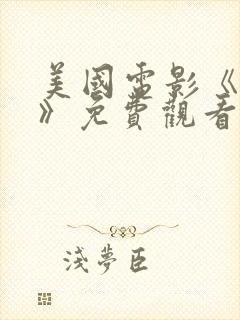 美國電影《
》免費觀看
淺夢臣